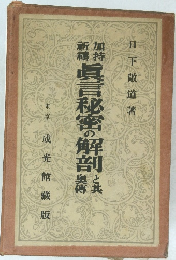 日下敞道著
加持
祈禱
眞言秘密の解剖と其奥傳
東京 成光館藏版